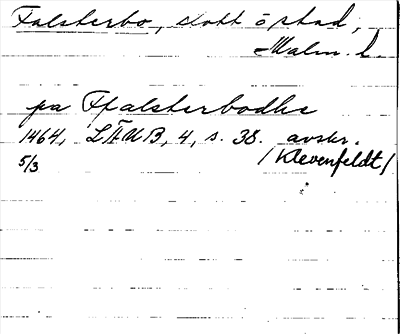 Falsterbo, slott o stad,
Malm. l.
pa Ffalsterbodhe
1464, LÄUB, 4, s. 38. avskr.
5/3 /Klevenfeldt/